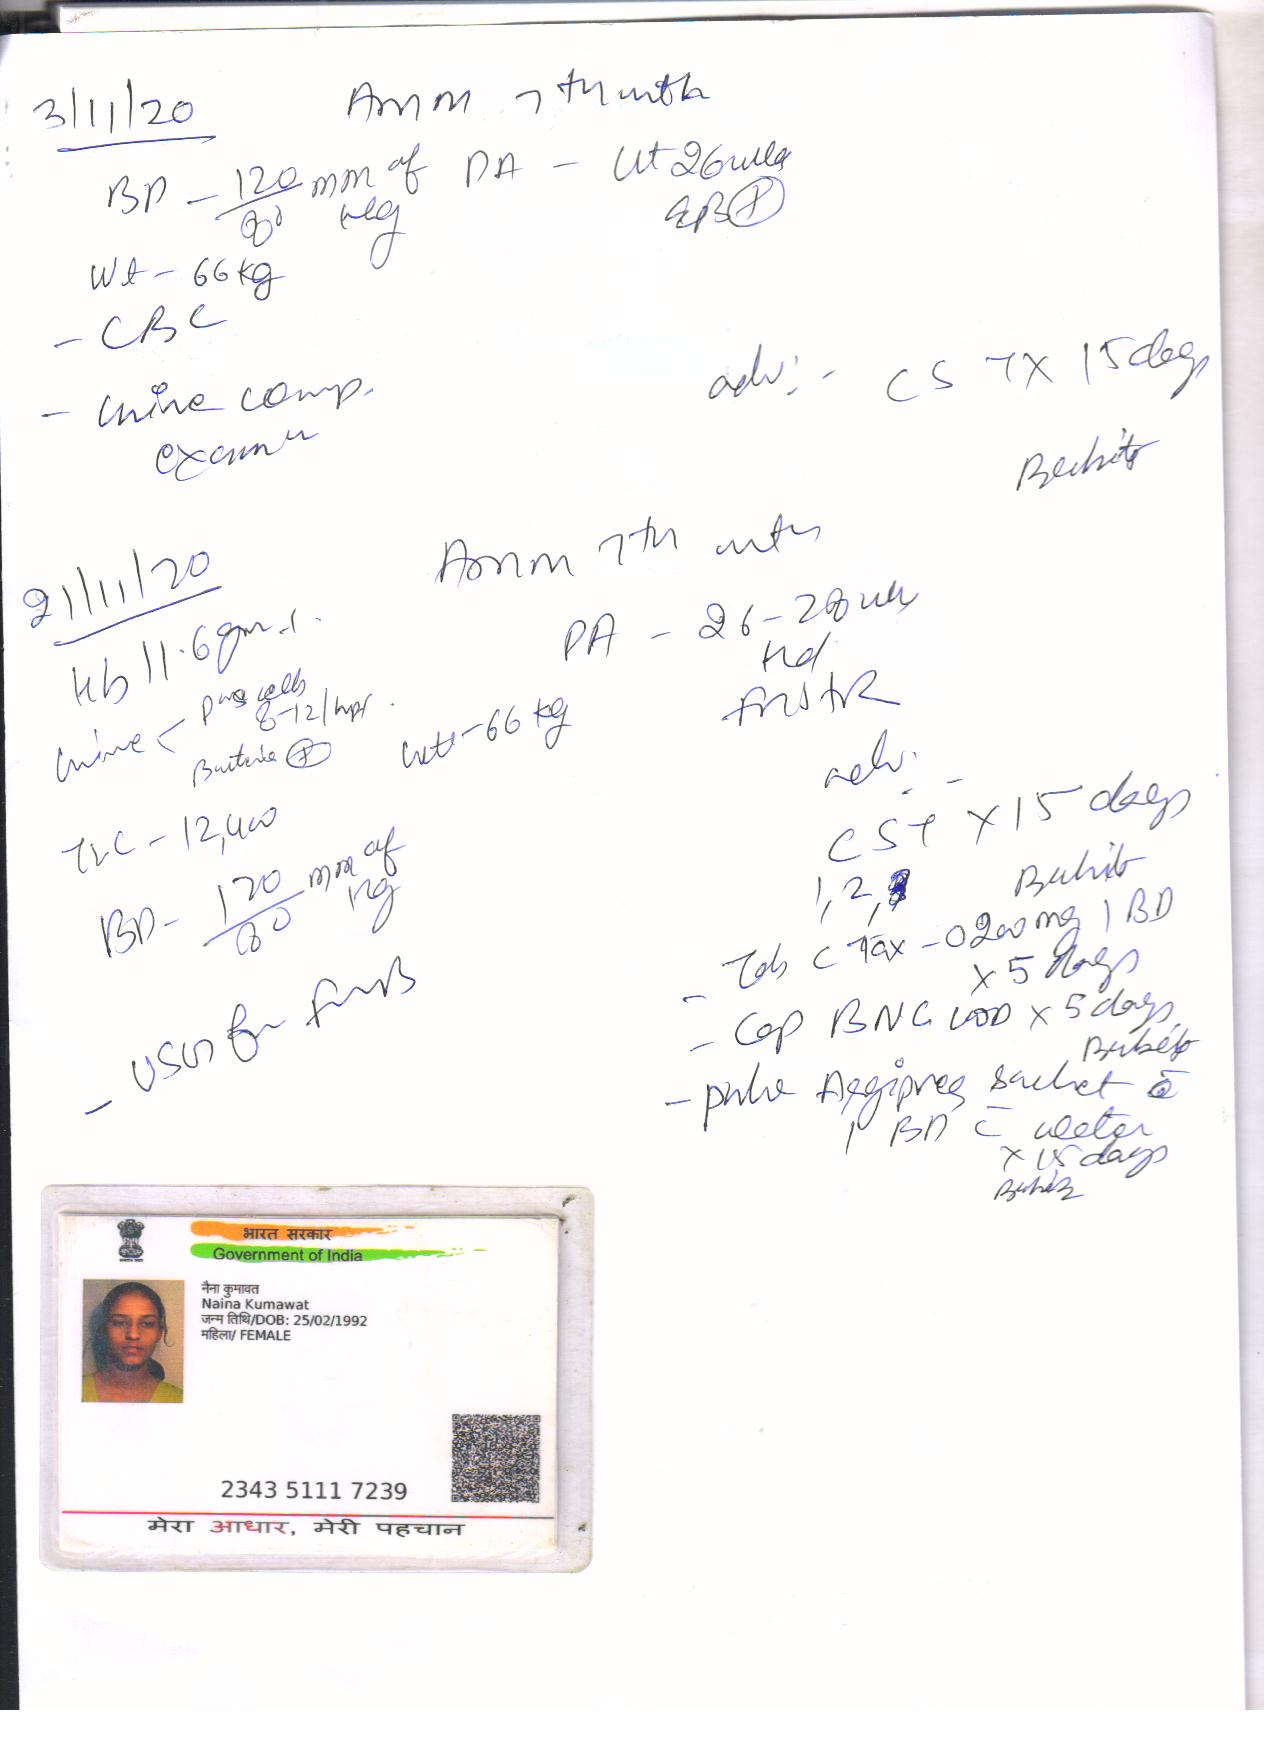 3/11/20 Amm 7th mth
BP - 120/80 mm of Hg PA - Ut 26 wks
Wt - 66 kg
- CBC
- urine comp.
exam
adv: - CST X 15 days
21/11/20 Amm 7th mth
Hb 11.6 gm.
PA - 26-28 wks
urine < pus cells
8-12/hpf.
Bacteria +
Wt - 66 kg
adv: -
TLC - 12,400
CST X 15 days
BP - 120/80 mm of Hg
1, 2,
- Tab C Tax - O 200mg 1 BD
X 5 days
- USG for
- Cap BNC 1 OD X 5 days
- sachet
1 BD c̄ water
X 15 days
भारत सरकार
Government of India
नैना कुमावत
Naina Kumawat
जन्म तिथि/DOB: 25/02/1992
महिला/ FEMALE
2343 5111 7239
मेरा आधार, मेरी पहचान